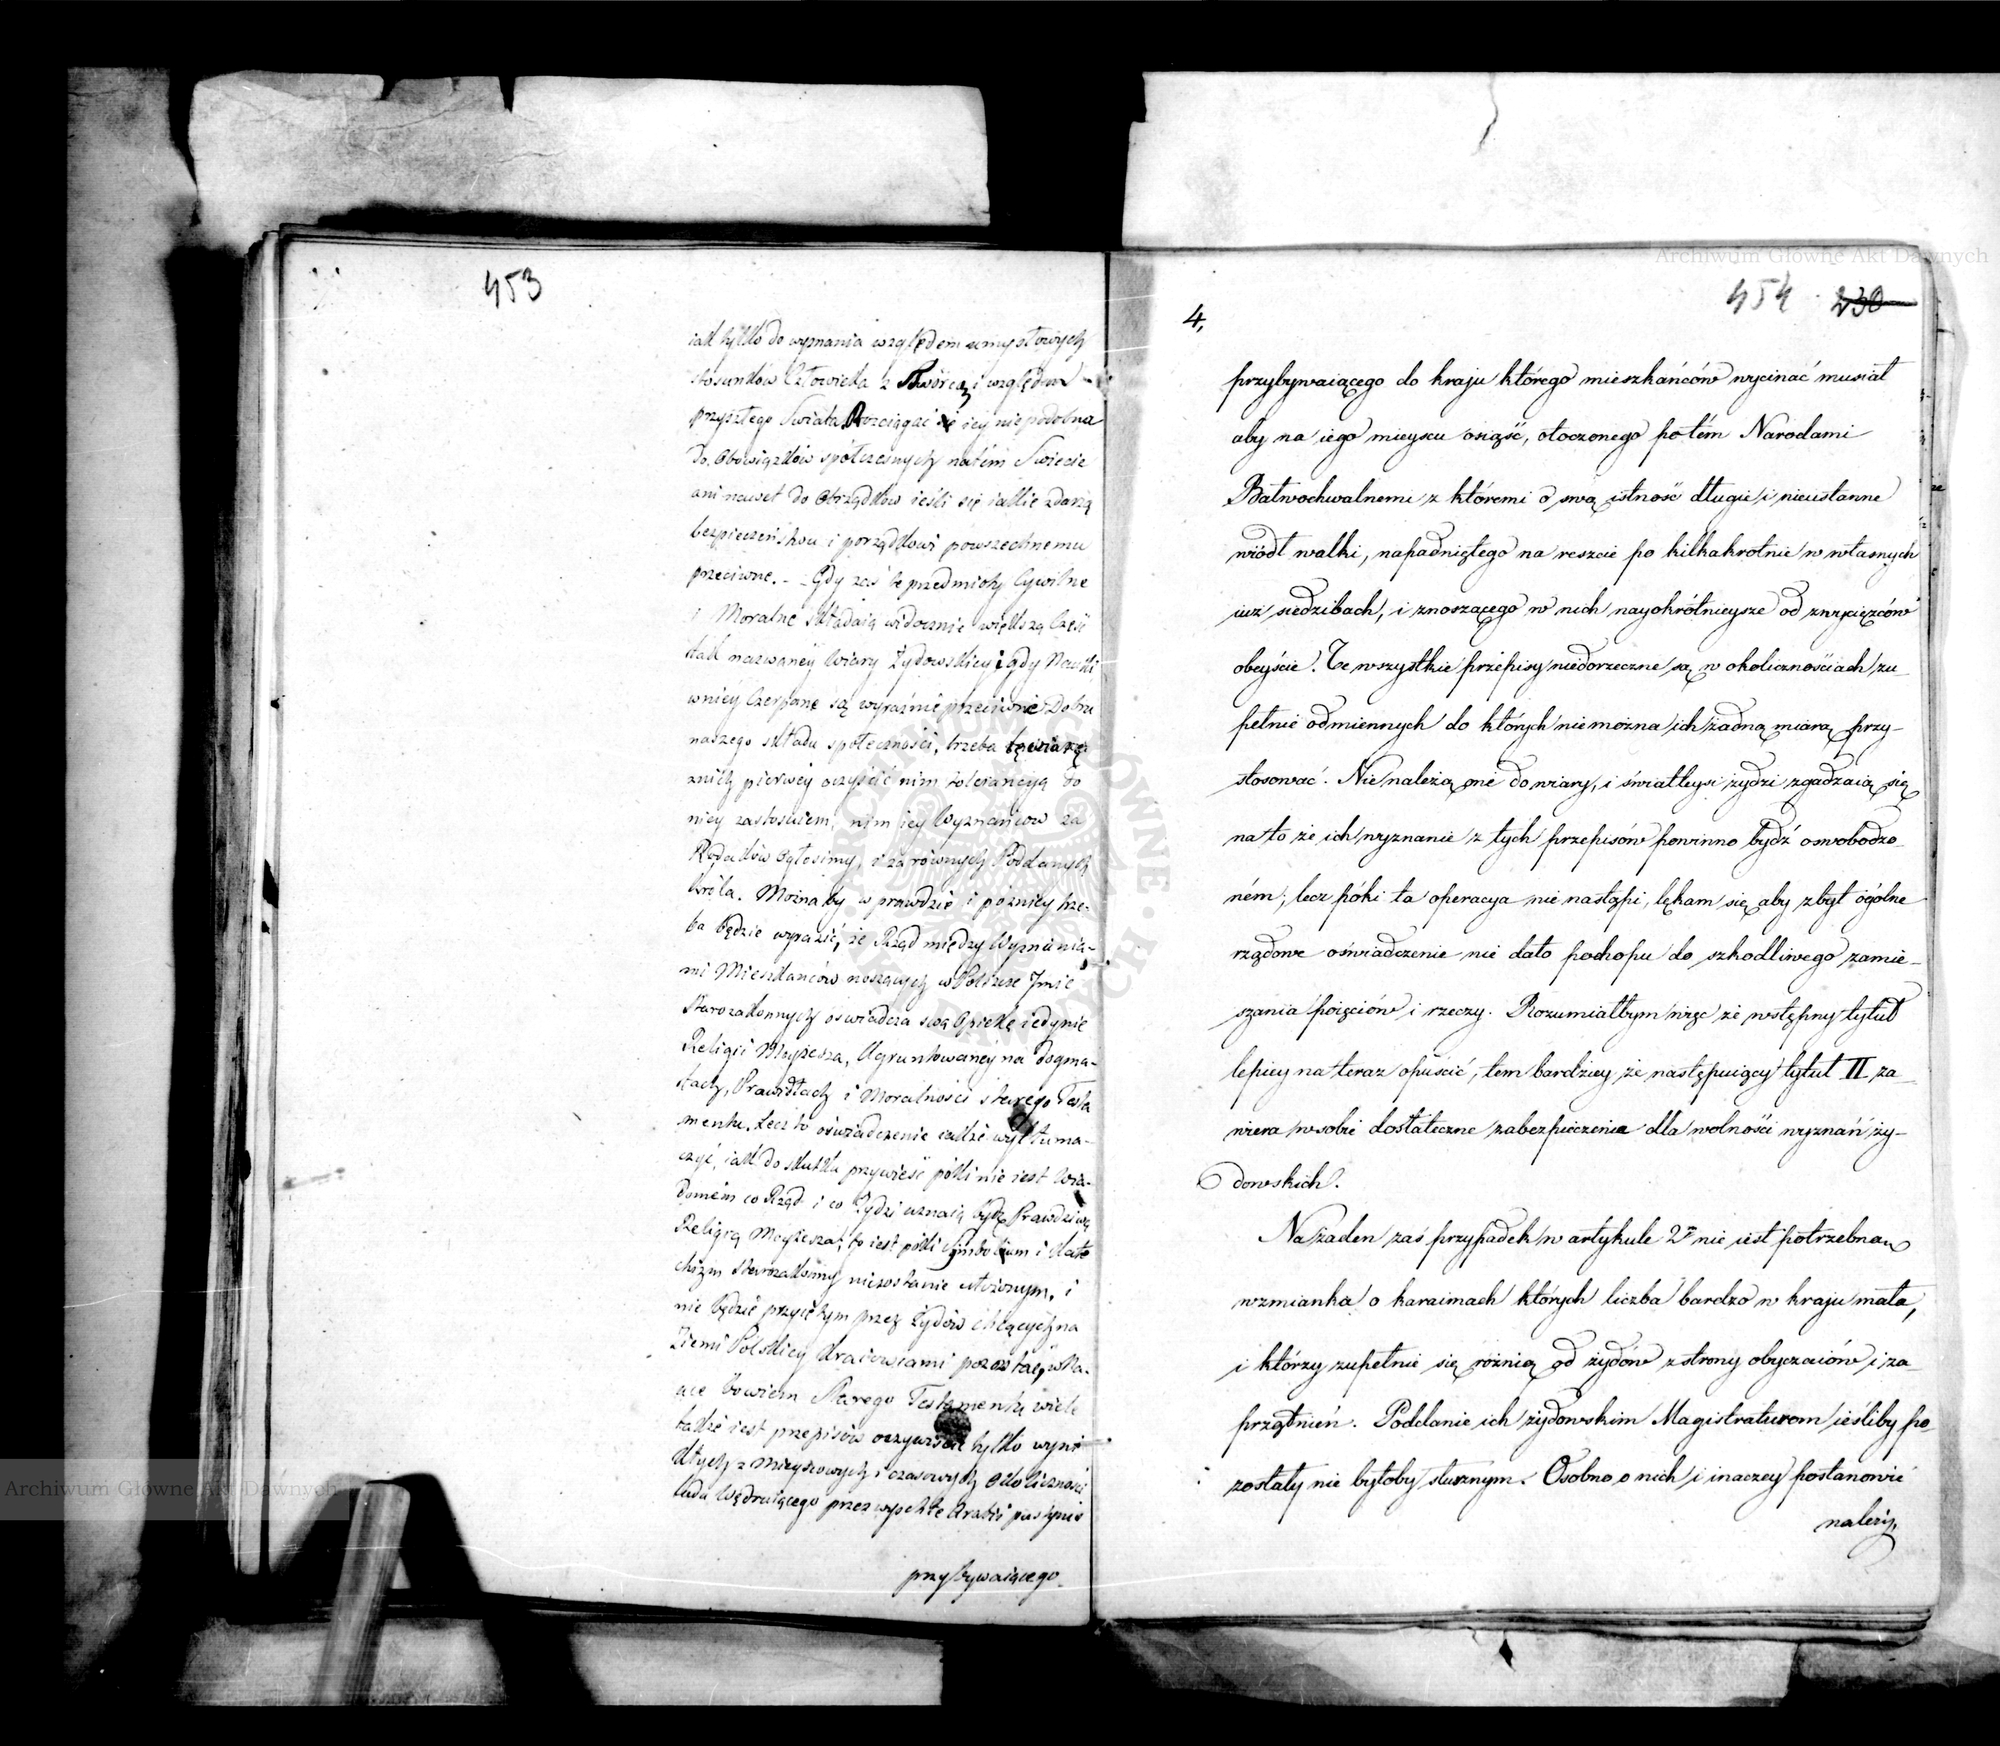 453
iak tylko do wyznania względem umysłowych
stosunków Człowieka z Stwórcą i względem
przyszłego Świata. Rozciągać iey niepodobna
do Obowiązków spółczesnych na tém Świecie
ani nawet do Obrządków ieśli się iakie zdarzą
bezpieczeństwu i porządkowi powszechnemu
przeciwne. – Gdy zaś te przedmioty Cywilne
i Moralne składaią widocznie większą Część
tak nazwaney Wiary Żydowskiey i gdy Nauki
w niey Czerpane są wyraźnie przeciwne Dobru
naszego składu społeczności, trzeba tę wiarę
z nich pierwey oczyścić nim tolerancyą do
niey zastosuiem, nim iey Wyznańcow za
Rodaków ogłosimy, i za równych Poddanych
króla. Można by w prawdzie i późniey trze-
ba będzie wyrazić, że Rząd między Wyznania-
mi Mieszkanców noszących w Polszcze Imie
Starozakonnych oświadcza swą Opiekę iedynie
Religii Moyżesza, Ugruntowaney na dogma-
tach, Prawidłach i Moralności starego Testa
mentu. Lecz to oświadczenie iakże wytłuma-
czyć, iak do skutku przywieść póki nie iest wia-
domém co Rząd i co Żydzi uznaią bydź Prawdziwą
Religią Moyżesza; to iest póki Simbolum i Kate
chizm Starozakonny niezostanie ułożonym, i
nie będzie przyiętym przez Żydów chcących na
Ziemi Polskiey kraiowcami pozostać, w Ka-
ące bowiem Starego Testamentu wiele
także iest przepisów oczywiście tylko wyni
kłych z mieyscowych i czasowych Okoliczności
ludu Wędruiącego przez wyschłe Arabii pustynie
przybywaiącego
454 230
4,
przybywaiącego do kraiu którego mieszkańców wycinać musiał
aby na iego mieyscu osiąść, otoczonego potém Narodami
Bałwochwalnemi z któremi o swą istność długie i nieustanne
wiódł walki, napadniętego na reszcie po kilkakrotnie w własnych
iuż siedzibach, i znoszącego w nich nayokrótnieysze od zwycięzców
obeyście. Te wszystkie przepisy niedorzeczne są w okolicznościach zu-
pełnie odmiennych do których niemożna ich żadną miarą przy-
stosować. Nie należą one do wiary, i światleysi żydzi zgadzaią się
na to że ich wyznanie z tych przepisów powinno bydź oswobodzo-
ném; lecz póki ta operacya nie nastąpi, lękam się aby zbyt ogólne
rządowe oświadczenie nie dało pochopu do szkodliwego zamie-
szania poięciów i rzeczy. Rozumiałbym więc że wstępny tytuł
lepiey na teraz opuścić, tem bardziey że następuiący tytuł II za-
wiera w sobie dostateczne zabezpieczenie dla wolności wyznań ży-
dowskich.
Na żaden zaś przypadek w artykule 2m nie iest potrzebna
wzmianka o karaimach których liczba bardzo w kraju mała,
i którzy zupełnie się róźnią od żydów z strony obyczaiów i za-
przątnień. Poddanie ich żydowskim Magistraturom ieśliby po-
zostały nie byłoby słusznym. Osobno o nich i inaczey postanowić
należy.
Archiwum Główne Akt Dawnych
Archiwum Główne Akt Dawnych